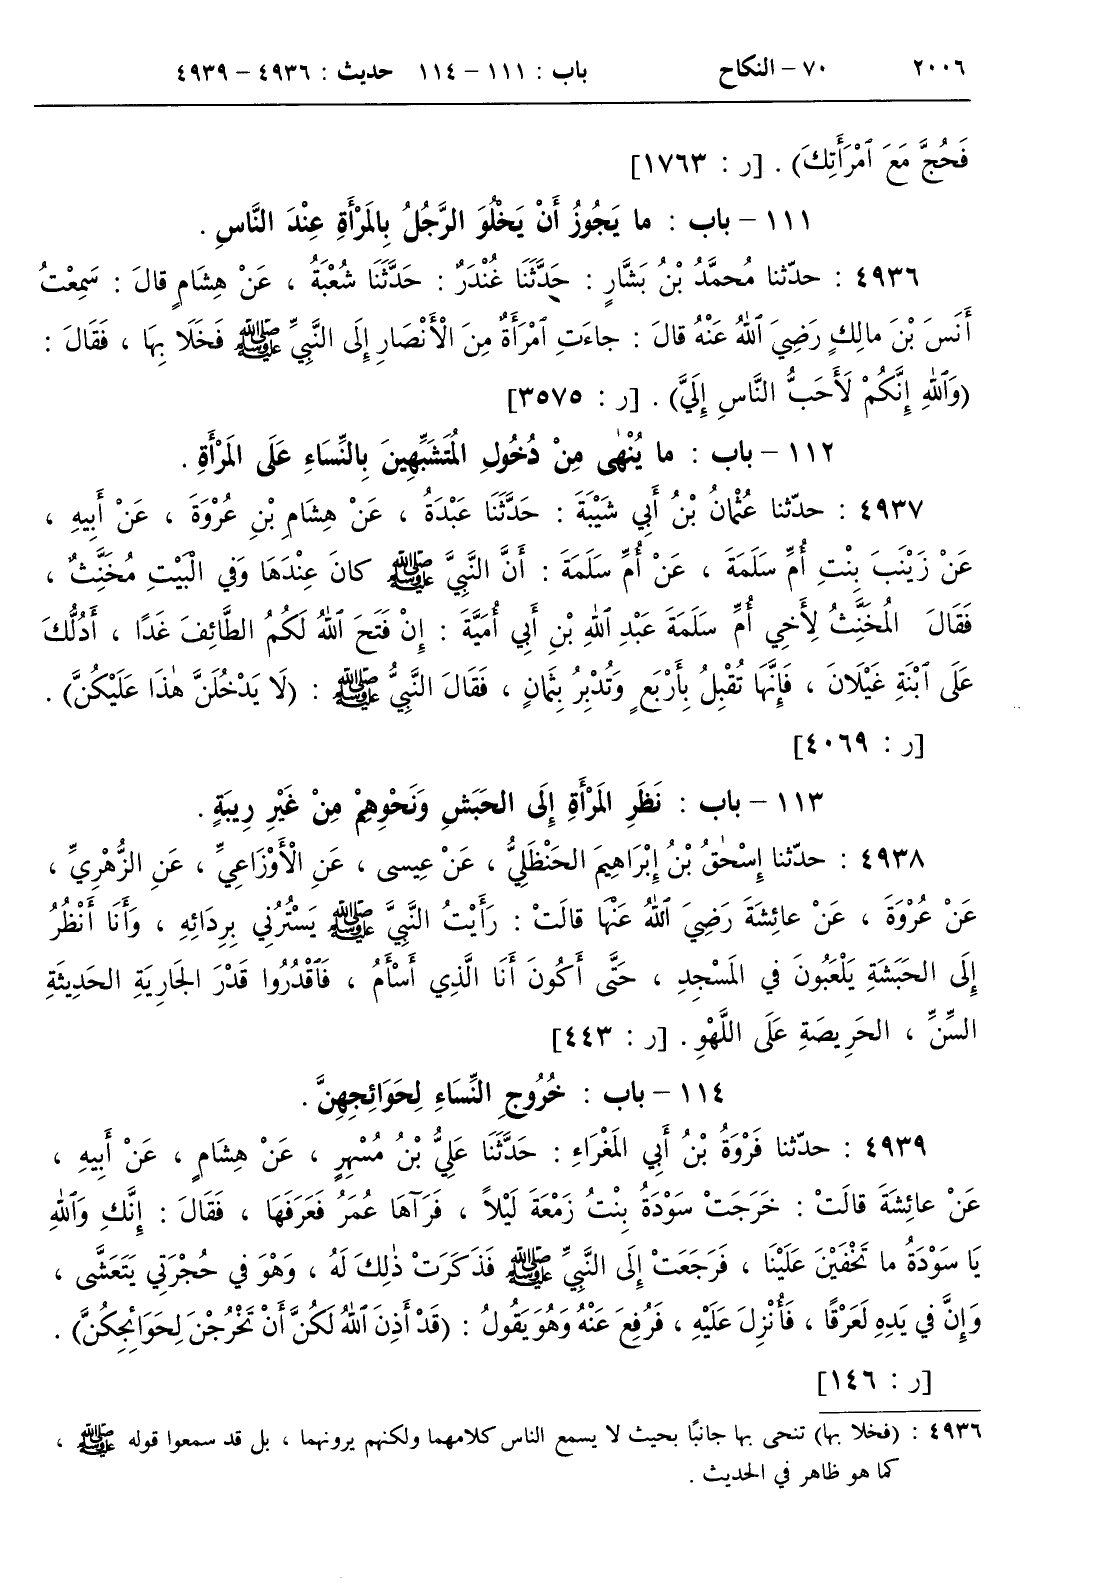 ٢٠٠٦ ٧٠ – النكاح باب : ١١١ – ١١٤ حديث : ٤٩٣٦ – ٤٩٣٩
فَحُجَّ مَعَ ٱمْرَأَتِكَ) . [ر : ١٧٦٣]
١١١ – باب : ما يَجُوزُ أَنْ يَخْلُوَ الرَّجُلُ بِالمَرْأَةِ عِنْدَ النَّاسِ .
٤٩٣٦ : حدّثنا مُحمَّدُ بْنُ بَشَّارٍ : حَدَّثَنَا غُنْدَرٌ : حَدَّثَنَا شُعْبَةُ ، عَنْ هِشَامٍ قالَ : سَمِعْتُ
أَنَسَ بْنَ مالِكٍ رَضِيَ ٱللهُ عَنْهُ قالَ : جاءَتِ ٱمْرَأَةٌ مِنَ الْأَنْصَارِ إِلَى النَّبِيِّ ﷺ فَخَلَا بِهَا ، فَقَالَ :
(وَٱللهِ إِنَّكُمْ لَأَحَبُّ النَّاسِ إِلَيَّ) . [ر : ٣٥٧٥]
١١٢ – باب : ما يُنْهٰى مِنْ دُخُولِ المُتَشَبِّهِينَ بِالنِّسَاءِ عَلَى المَرْأَةِ .
٤٩٣٧ : حدّثنا عُثْمانُ بْنُ أَبِي شَيْبَةَ : حَدَّثَنَا عَبْدَةُ ، عَنْ هِشَامِ بْنِ عُرْوَةَ ، عَنْ أَبِيهِ ،
عَنْ زَيْنَبَ بِنْتِ أُمِّ سَلَمَةَ ، عَنْ أُمِّ سَلَمَةَ : أَنَّ النَّبِيَّ ﷺ كانَ عِنْدَهَا وَفي الْبَيْتِ مُخَنَّثٌ ،
فَقَالَ المُخَنَّثُ لِأَخِي أُمِّ سَلَمَةَ عَبْدِ ٱللهِ بْنِ أَبِي أُمَيَّةَ : إِنْ فَتَحَ ٱللهُ لَكُمُ الطَّائِفَ غَدًا ، أَدُلُّكَ
عَلَى ٱبْنَةِ غَيْلَانَ ، فَإِنَّهَا تُقْبِلُ بِأَرْبَعٍ وَتُدْبِرُ بِثَمانٍ ، فَقَالَ النَّبِيُّ ﷺ : (لَا يَدْخُلَنَّ هٰذَا عَلَيْكُنَّ) .
[ر : ٤٠٦٩]
١١٣ – باب : نَظَرِ المَرْأَةِ إِلَى الحَبَشِ وَنَحْوِهِمْ مِنْ غَيْرِ رِيبَةٍ .
٤٩٣٨ : حدّثنا إِسْحٰقُ بْنُ إِبْرَاهِيمَ الحَنْظَلِيُّ ، عَنْ عِيسى ، عَنِ الْأَوْزَاعِيِّ ، عَنِ الزُّهْرِيِّ ،
عَنْ عُرْوَةَ ، عَنْ عائِشَةَ رَضِيَ ٱللهُ عَنْهَا قالَتْ : رَأَيْتُ النَّبِيَّ ﷺ يَسْتُرُنِي بِرِدَائِهِ ، وَأَنَا أَنْظُرُ
إِلَى الحَبَشَةِ يَلْعَبُونَ في المَسْجِدِ ، حَتَّى أَكُونَ أَنَا الَّذِي أَسْأَمُ ، فَٱقْدُرُوا قَدْرَ الجَارِيَةِ الحَدِيثَةِ
السِّنِّ ، الحَرِيصَةِ عَلَى اللَّهْوِ . [ر : ٤٤٣]
١١٤ – باب : خُرُوجِ النِّسَاءِ لِحَوَائِجِهِنَّ .
٤٩٣٩ : حدّثنا فَرْوَةُ بْنُ أَبِي المَغْرَاءِ : حَدَّثَنَا عَلِيُّ بْنُ مُسْهِرٍ ، عَنْ هِشَامٍ ، عَنْ أَبِيهِ ،
عَنْ عائِشَةَ قالَتْ : خَرَجَتْ سَوْدَةُ بِنْتُ زَمْعَةَ لَيْلاً ، فَرَآهَا عُمَرُ فَعَرَفَهَا ، فَقَالَ : إِنَّكِ وَٱللهِ
يَا سَوْدَةُ ما تَخْفَيْنَ عَلَيْنَا ، فَرَجَعَتْ إِلَى النَّبِيِّ ﷺ فَذَكَرَتْ ذٰلِكَ لَهُ ، وَهْوَ في حُجْرَتِي يَتَعَشَّى ،
وَإِنَّ في يَدِهِ لَعَرْقًا ، فَأُنْزِلَ عَلَيْهِ ، فَرُفِعَ عَنْهُ وَهُوَ يَقُولُ : (قَدْ أَذِنَ ٱللهُ لَكُنَّ أَنْ تَخْرُجْنَ لِحَوَائِجِكُنَّ) .
[ر : ١٤٦]
٤٩٣٦ : (فخلا بها) تنحى بها جانبًا بحيث لا يسمع الناس كلامهما ولكنهم يرونهما ، بل قد سمعوا قوله ﷺ ،
كما هو ظاهر في الحديث .